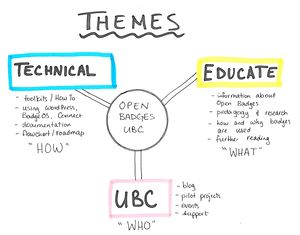 THEMES
TECHNICAL
- toolkits / How To
- using WordPress,
BadgeOS, Connect
- documentation
- flowchart / roadmap
"HOW"
OPEN
BADGES
UBC
EDUCATE
- information about
Open Badges
- pedagogy & research
- how and why badges
are used
- further reading
"WHAT"
UBC
- blog
- pilot projects
- events
- support
"WHO"